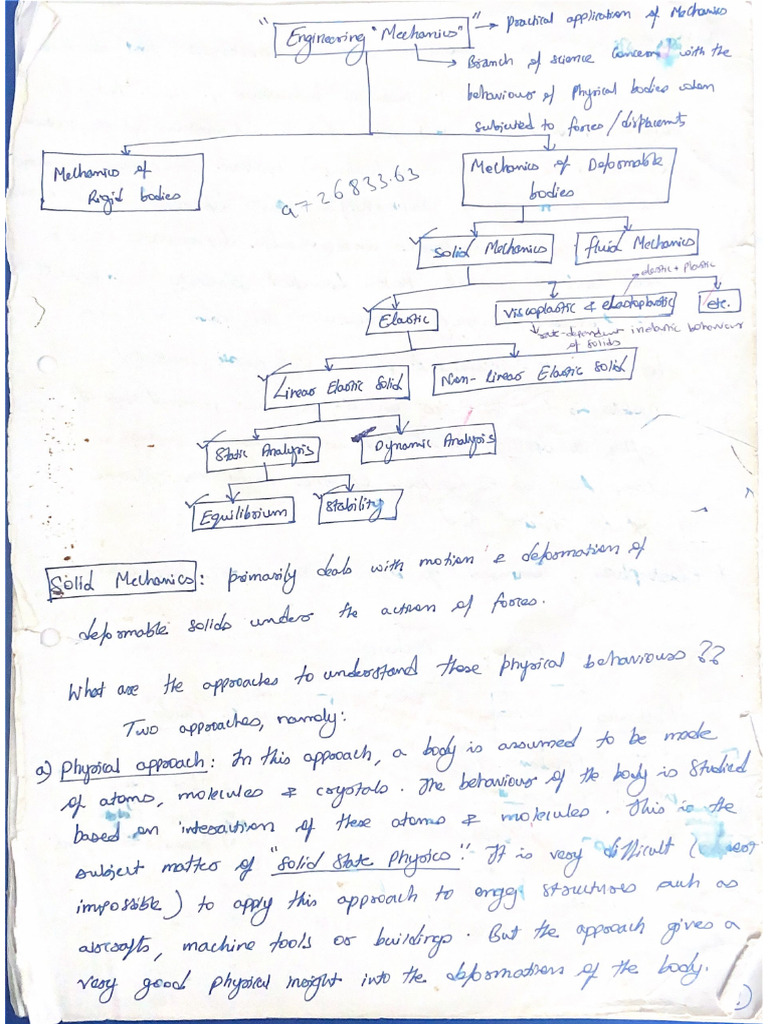 "Engineering "Mechanics"" → practical application of Mechanics
→ Branch of science concern with the
behaviour of physical bodies when
subjected to forces/displacements
Mechanics of
Rigid bodies
Mechanics of Deformable
bodies
a = 26833.63
Solid Mechanics
fluid Mechanics
elastic + plastic
Elastic
Viscoplastic & elastoplastic
etc.
rate-dependent inelastic behaviour
of solids
Linear Elastic Solid
Non-Linear Elastic Solid
Static Analysis
Dynamic Analysis
Equilibrium
Stability
Solid Mechanics: primarily deals with motion & deformation of
deformable solids under the action of forces.
What are the approaches to understand these physical behaviours ??
Two approaches, namely:
a) Physical approach: In this approach, a body is assumed to be made
of atoms, molecules & crystals. The behaviour of the body is studied
based on interaction of these atoms & molecules. This is the
subject matter of "Solid State Physics". It is very difficult (
impossible) to apply this approach to engg structures such as
aircrafts, machine tools or buildings. But the approach gives a
very good physical insight into the deformations of the body.